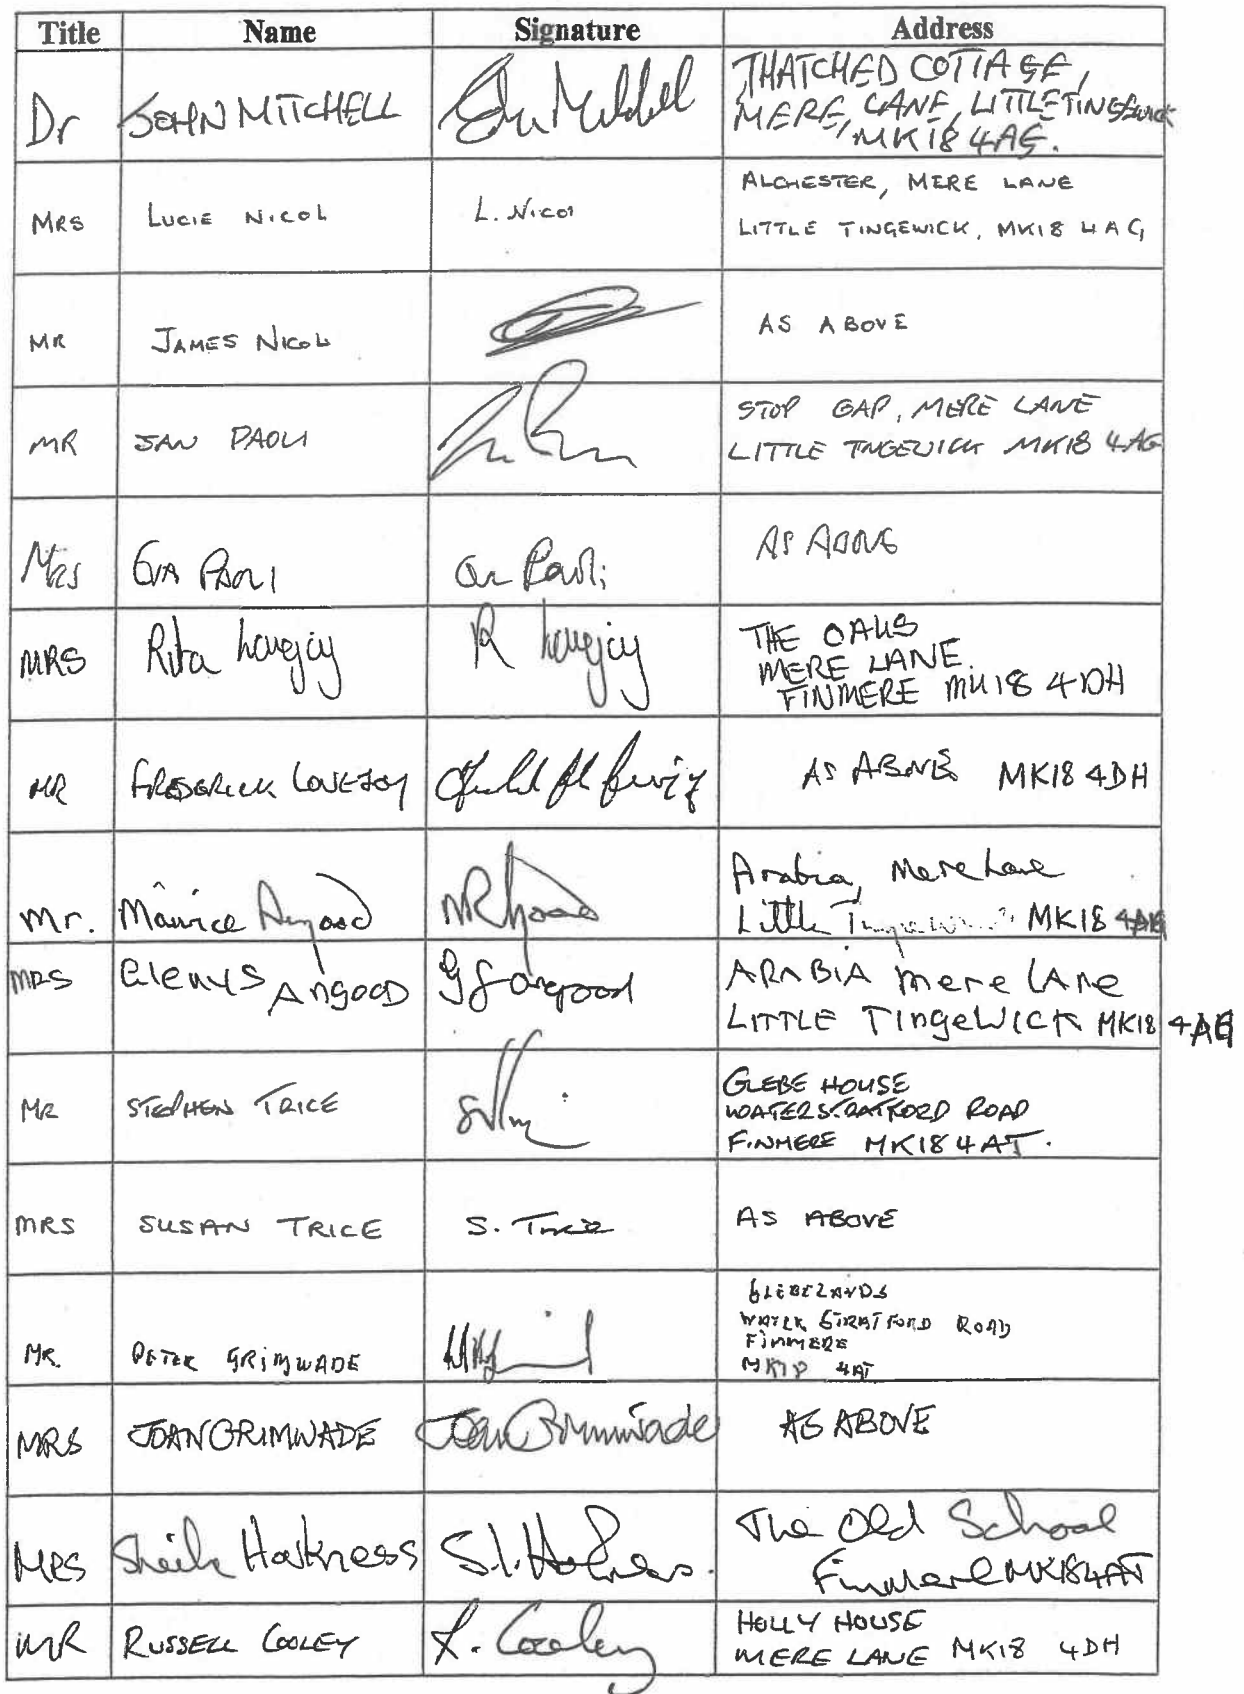 Title Name Signature Address
Dr JOHN MITCHELL THATCHED COTTAGE,
MERE, LANE, LITTLE TINGEWICK
MK18 4AG.
MRS LUCIE NICOL L. Nicol ALCHESTER, MERE LANE
LITTLE TINGEWICK, MK18 4AG
MR JAMES NICOL AS ABOVE
MR JAN PAOLI STOP GAP, MERE LANE
LITTLE TINGEWICK MK18 4AG
MRS EVA PAOLI Paoli AS ABOVE
MRS Rita Lovejoy R Lovejoy THE OAKS
MERE LANE.
FINMERE MK18 4DH
MR FREDERICK LOVEJOY AS ABOVE MK18 4DH
Mr. Maurice Angood Arabia, Mere Lane
Little Tingewick MK18 4AG
MRS Glenys ANGOOD Angood ARABIA mere LANe
LITTLE TINgeWICK MK18 4AG
MR STEPHEN TRICE GLEBE HOUSE
WATER STRATFORD ROAD
FINMERE MK18 4AT.
MRS SUSAN TRICE S. Trice AS ABOVE
MR. PETER GRIMWADE GLEBELANDS
WATER STRATFORD ROAD
FINMERE
MK18 4AT
MRS JOAN GRIMWADE Joan Grimwade AS ABOVE
MRS Sheila Harkness The Old School
Finmere MK18 4AT
MR RUSSELL COOLEY R. Cooley HOLLY HOUSE
MERE LANE MK18 4DH